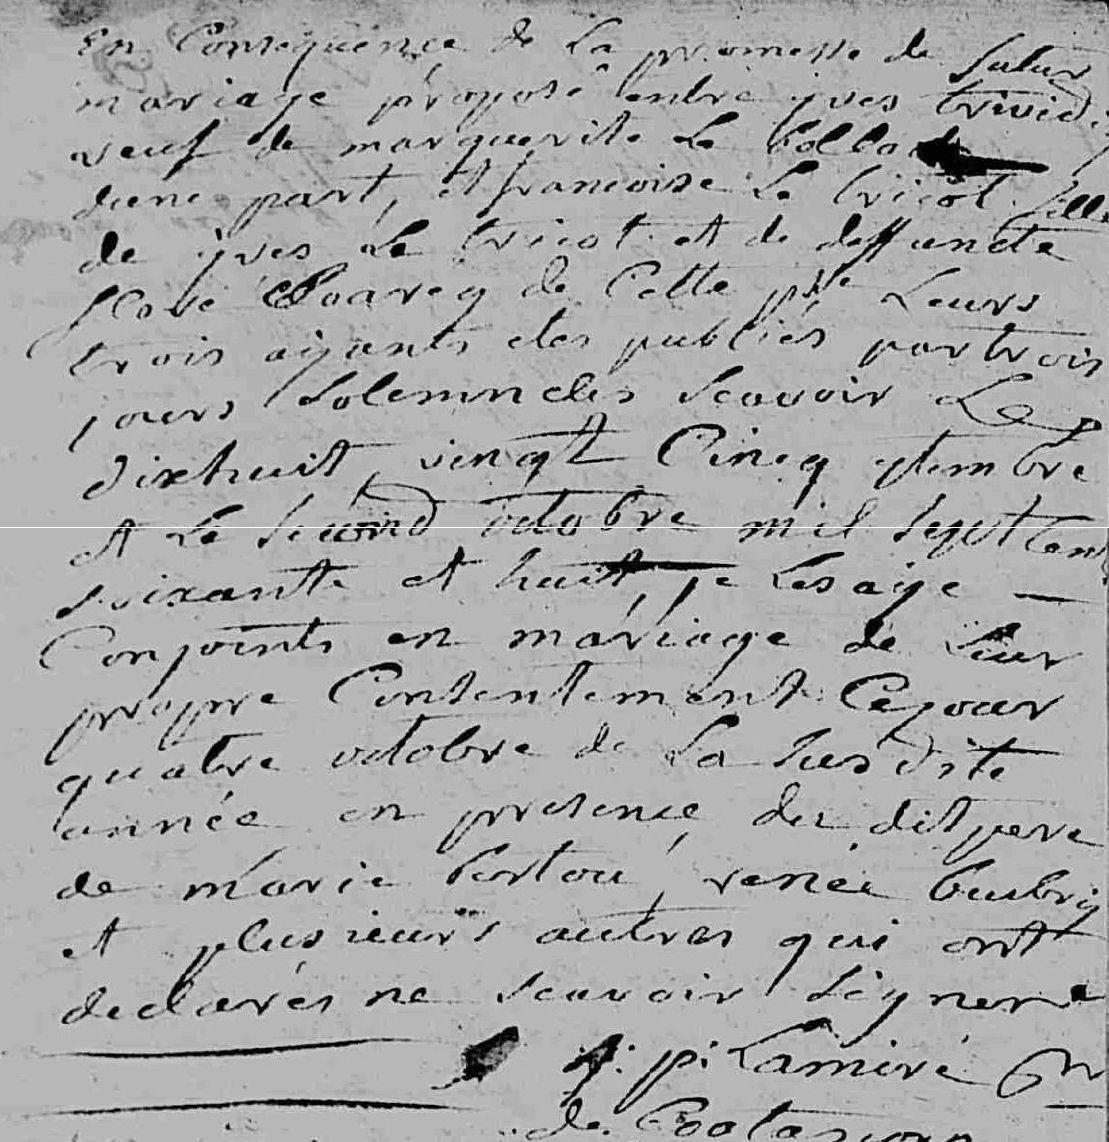 En Consequence de La promesse de futur
mariage proposé entre yves trividi
veuf de marguerite Le
dune part, et francoise Le tricot fille
de yves Le tricot et de deffuncte
de Cette psse Leurs
trois ayants etes publiés par trois
jours Solemneles Scavoir Le
dixhuit, vingt Cincq ptembre
et Le Second octobre mil Sept Cent
soixante et huit, je Les aye
Conjoints en mariage de Leur
propre Contentement Ce jour
quatre octobre de La Susdite
année en presence du dit pere
de marie renée
et plusieurs autres qui ont
declarés ne scavoir Signer
p: Lamiré
de